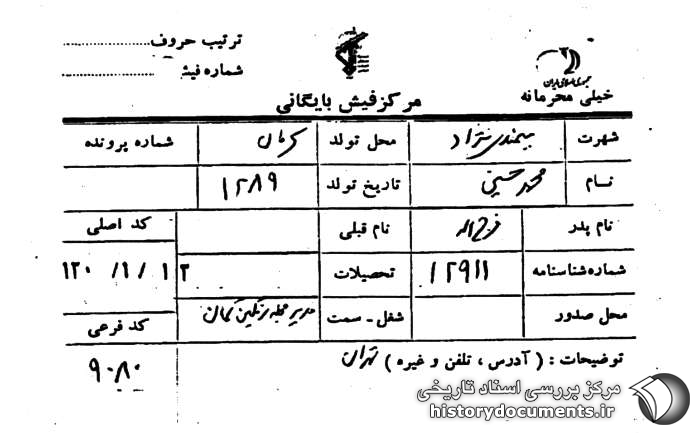 ترتیب حروف
شماره فیش
جمهوری اسلامی ایران
خیلی محرمانه
مرکز فیش بایگانی
شهرت محل تولد کرمان شماره پرونده
نام محمد حسین تاریخ تولد ۱۲۸۹
نام پدر فرج اله نام قبلی کد اصلی
شماره شناسنامه ۱۲۹۱۱ تحصیلات ۱۲۰ /۱/ ۱۲
محل صدور شغل - سمت مدیر مجله رنگین کمان کد فرعی
توضیحات : ( آدرس ، تلفن و غیره ) تهران
۹۰۸۰
مرکز بررسی اسناد تاریخی
historydocuments.ir